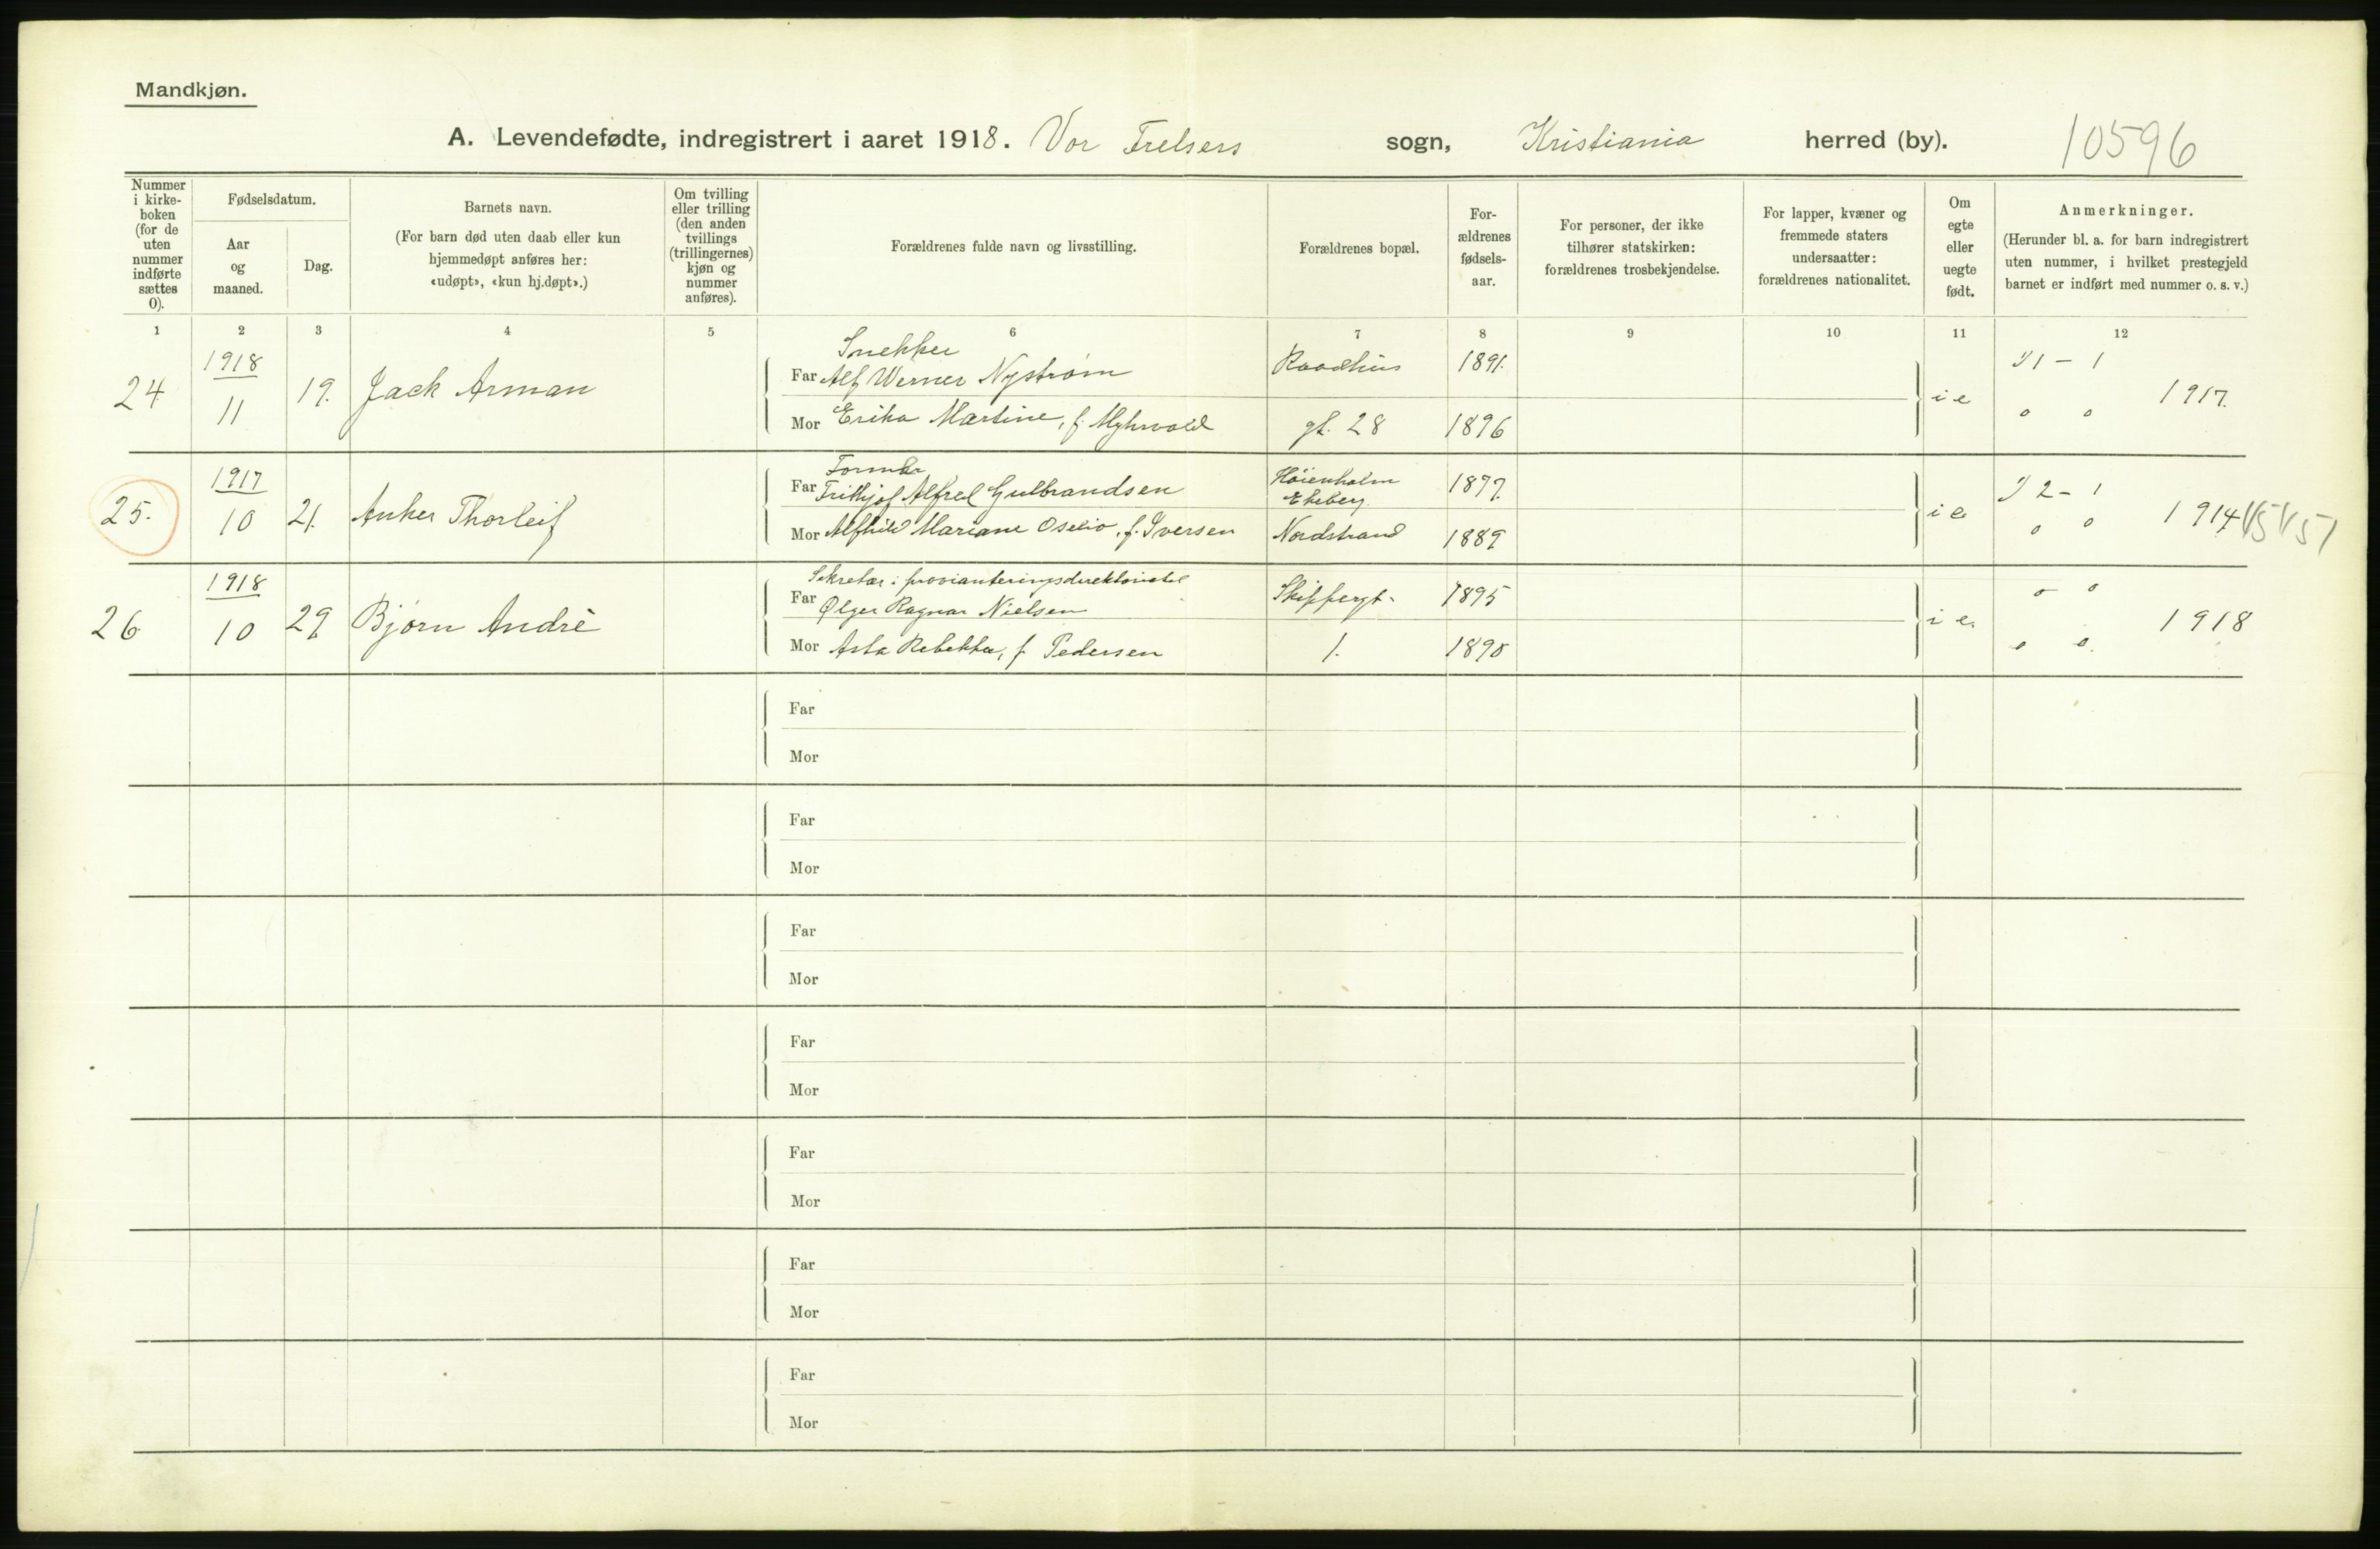 Mandkjøn.
A. Levendefødte, indregistrert i aaret 1918. Vor Frelsers sogn, Kristiania herred (by). 10596
Nummer i kirke-boken (for de uten nummer indførte sættes 0).
Fødselsdatum.
Aar og maaned.
Dag.
Barnets navn.
(For barn død uten daab eller kun hjemmedøpt anføres her: «udøpt», «kun hj.døpt».)
Om tvilling eller trilling (den anden tvillings (trillingernes) kjøn og nummer anføres).
Forældrenes fulde navn og livsstilling.
Forældrenes bopæl.
For-ældrenes fødsels-aar.
For personer, der ikke tilhører statskirken: forældrenes trosbekjendelse.
For lapper, kvæner og fremmede staters undersaatter: forældrenes nationalitet.
Om egte eller uegte født.
Anmerkninger.
(Herunder bl. a. for barn indregistrert uten nummer, i hvilket prestegjeld barnet er indført med nummer o. s. v.)
1 2 3 4 5 6 7 8 9 10 11 12
24 1918 11 19. Jack Arman
Snekker
Far Alf Werner Nystrøm Raadhus 1891.
Mor Erika Martine, f. Myhrvold gt. 28 1896
i e 1 - 1
o o 1917.
25. 1917 10 21. Anker Thorleif
Former
Far Frithjof Alfred Gulbrandsen Høienholm Ekeberg 1897.
Mor Alfhild Mariane Oselio, f. Iversen Nordstrand 1889
i e 2 - 1
o o 1914
26 1918 10 29 Bjørn Andrè
Sekretær i provianteringsdirektoratet
Far Ølger Ragnar Nielsen Skippergt. 1895
Mor Asta Rebekka, f. Pedersen 1. 1890
i e. o o
o o. 1918
Far
Mor
Far
Mor
Far
Mor
Far
Mor
Far
Mor
Far
Mor
Far
Mor